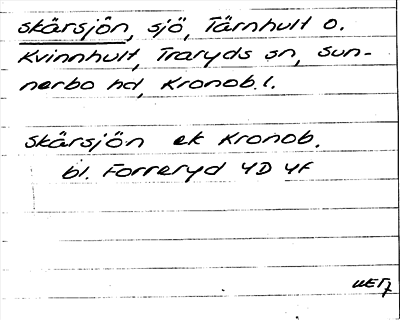 Skärsjön, sjö, Tärnhult o.
Kvinnhult, Traryds sn, Sun-
nerbo hd, Kronob. l.
Skärsjön ek Kronob.
bl. Forreryd 4D 4F